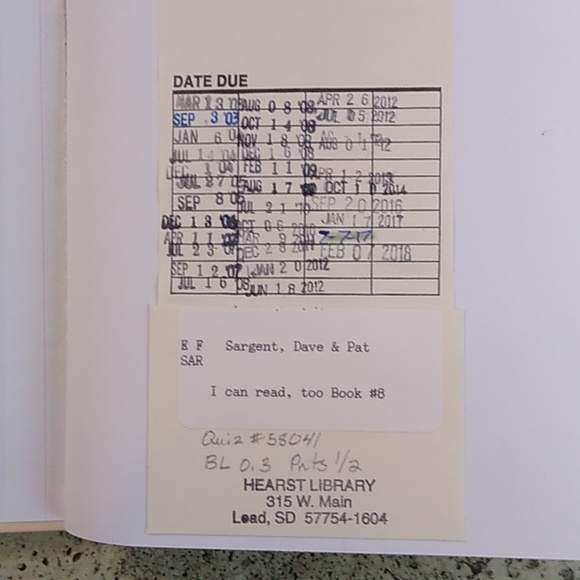 DATE DUE
MAR 13 '03 AUG 08 '08 APR 26 2012
SEP 3 '03 OCT 14 '08 JUL 05 2012
JAN 6 04 NOV 18 '08 AUG 01 '12
JUL 14 '04 DEC 16 '08
DEC 1 '04 FEB 11 '09 APR 12 2013
JUL 27 05 AUG 17 OCT 10 2014
SEP 8 05 JUL 21 '10 SEP 20 2016
DEC 13 OCT 06 2010 JAN 17 2017
APR 11 '07 MAR 9 2011 7-7-17
JUL 23 07 DEC 28 2011 FEB 07 2018
SEP 12 '07 JAN 20 2012
JUL 16 08 JUN 18 2012
E F Sargent, Dave & Pat
SAR
I can read, too Book #8
Quiz #58041
BL 0.3 Pnts 1/2
HEARST LIBRARY
315 W. Main
Lead, SD 57754-1604